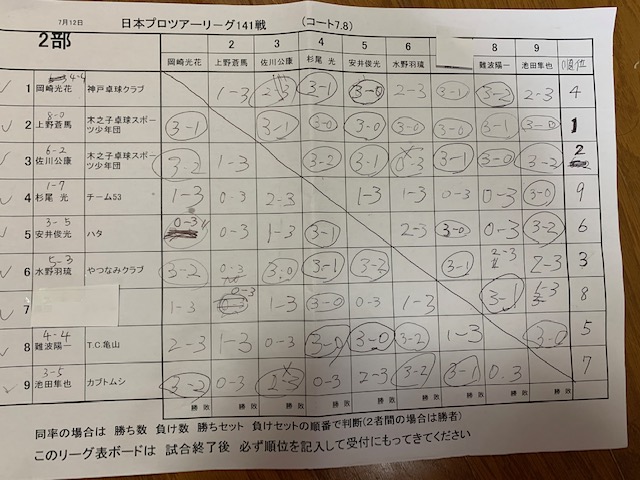 7月12日 日本プロツアーリーグ141戦 (コート7.8)
2部 2 3 4 5 6 8 9 順位
岡崎光花 上野蒼馬 佐川公康 杉尾 光 安井俊光 水野羽琉 難波陽一 池田隼也
4-4
1 岡崎光花 神戸卓球クラブ 1-3 3-1 3-0 2-3 3-1 3-2 2-3 4
8-0
2 上野蒼馬 木之子卓球スポーツ少年団 3-1 3-1 3-0 3-0 3-0 3-0 3-1 3-0 1
6-2
3 佐川公康 木之子卓球スポーツ少年団 3-2 1-3 3-2 3-1 3-1 3-0 3-2 2
1-7
4 杉尾 光 チーム53 1-3 0-3 2-3 1-3 1-3 0-3 0-3 3-0 9
3-5
5 安井俊光 ハタ 0-3 0-3 1-3 3-1 2-3 3-0 0-3 3-2 6
5-3
6 水野羽琉 やつなみクラブ 3-2 0-3 3-0 3-1 3-2 3-1 2-3 2-3 3
7 1-3 0-3 1-3 3-0 0-3 1-3 3-1 1-3 8
4-4
8 難波陽一 T.C.亀山 2-3 1-3 0-3 3-0 3-0 3-2 1-3 3-0 5
3-5
9 池田隼也 カブトムシ 3-2 0-3 2-3 0-3 2-3 3-2 3-1 0-3 7
勝 敗 勝 敗 勝 敗 勝 敗 勝 敗 勝 敗 勝 敗 勝 敗 勝 敗
同率の場合は 勝ち数 負け数 勝ちセット 負けセットの順番で判断(2者間の場合は勝者)
このリーグ表ボードは 試合終了後 必ず順位を記入して受付にもってきてください